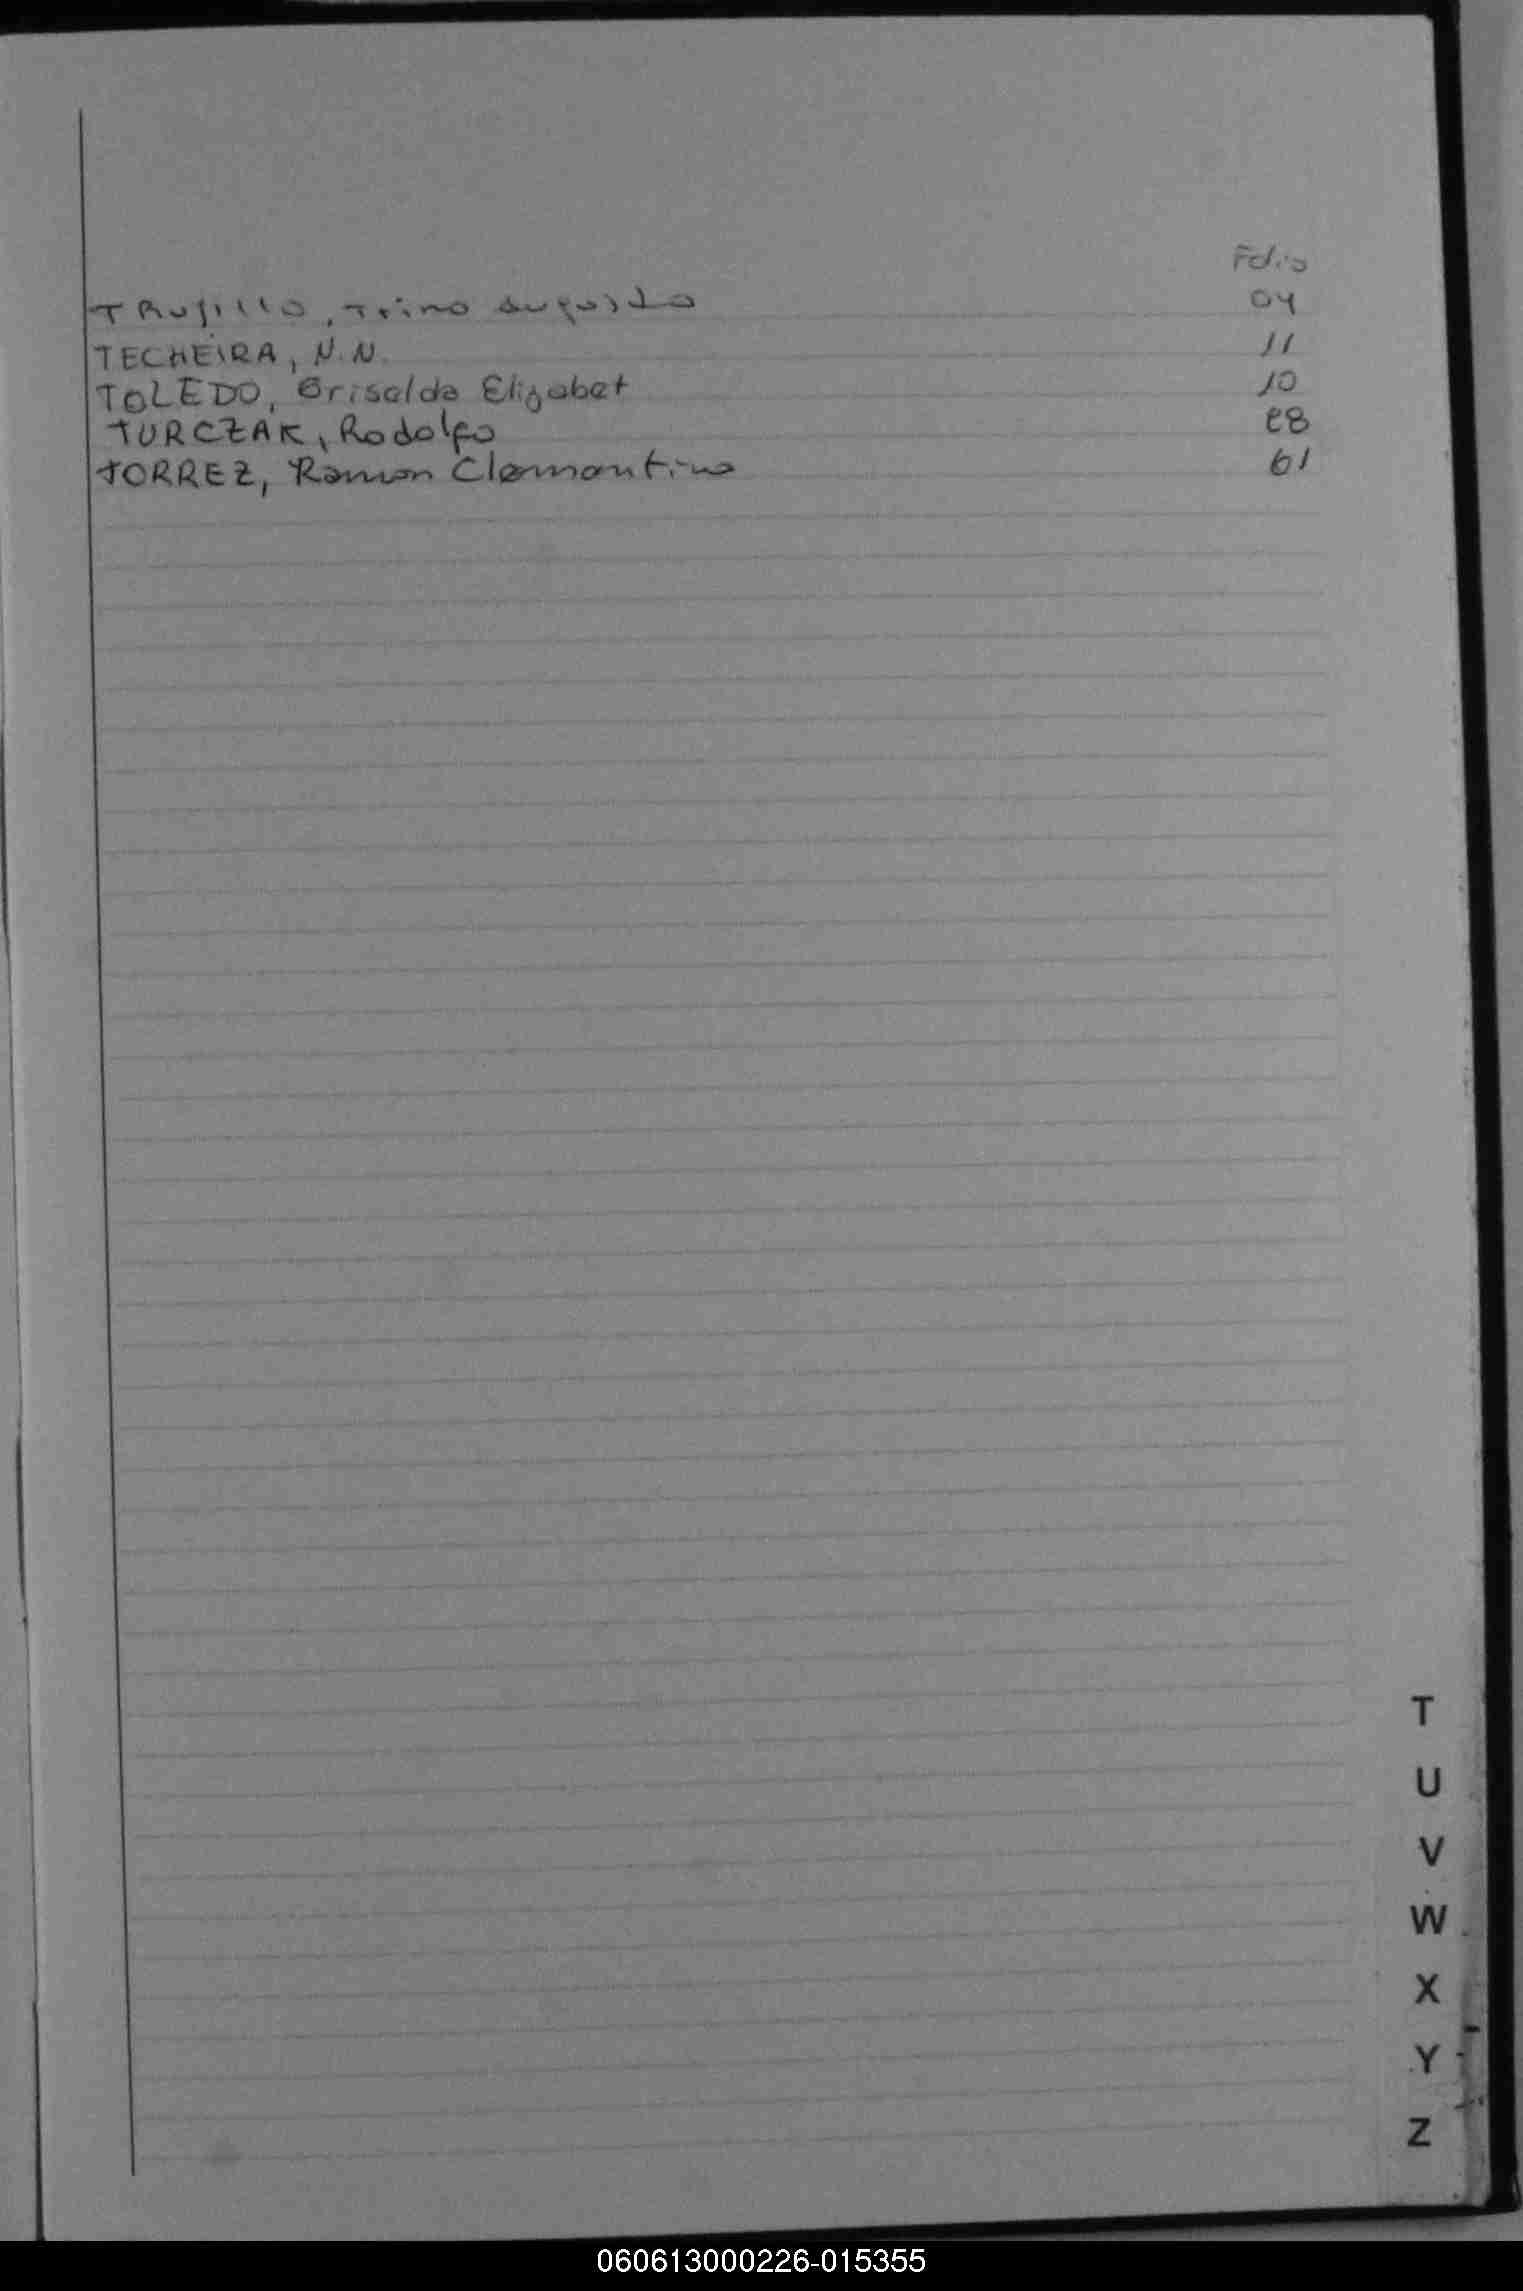 Folio
TRUJILLO, Trino Augusto 04
TECHEIRA, N.N. 11
TOLEDO, Griselda Elizabet 10
TURCZAK, Rodolfo 28
TORREZ, Ramon Clementino 61
T
U
V
W
X
Y
Z
060613000226-015355